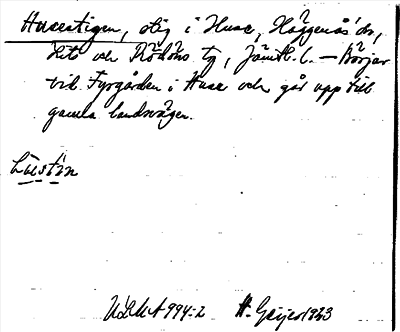 Husestigen, stig i Huse, Häggenås' ds,
Lits och Rödöns tg, Jämtl. l. — Börjar
vid Fyrgården i Huse och går upp till
gamla landsvägen.
hŭestı̄n
ULMA 994:2 H. Geijer 1923